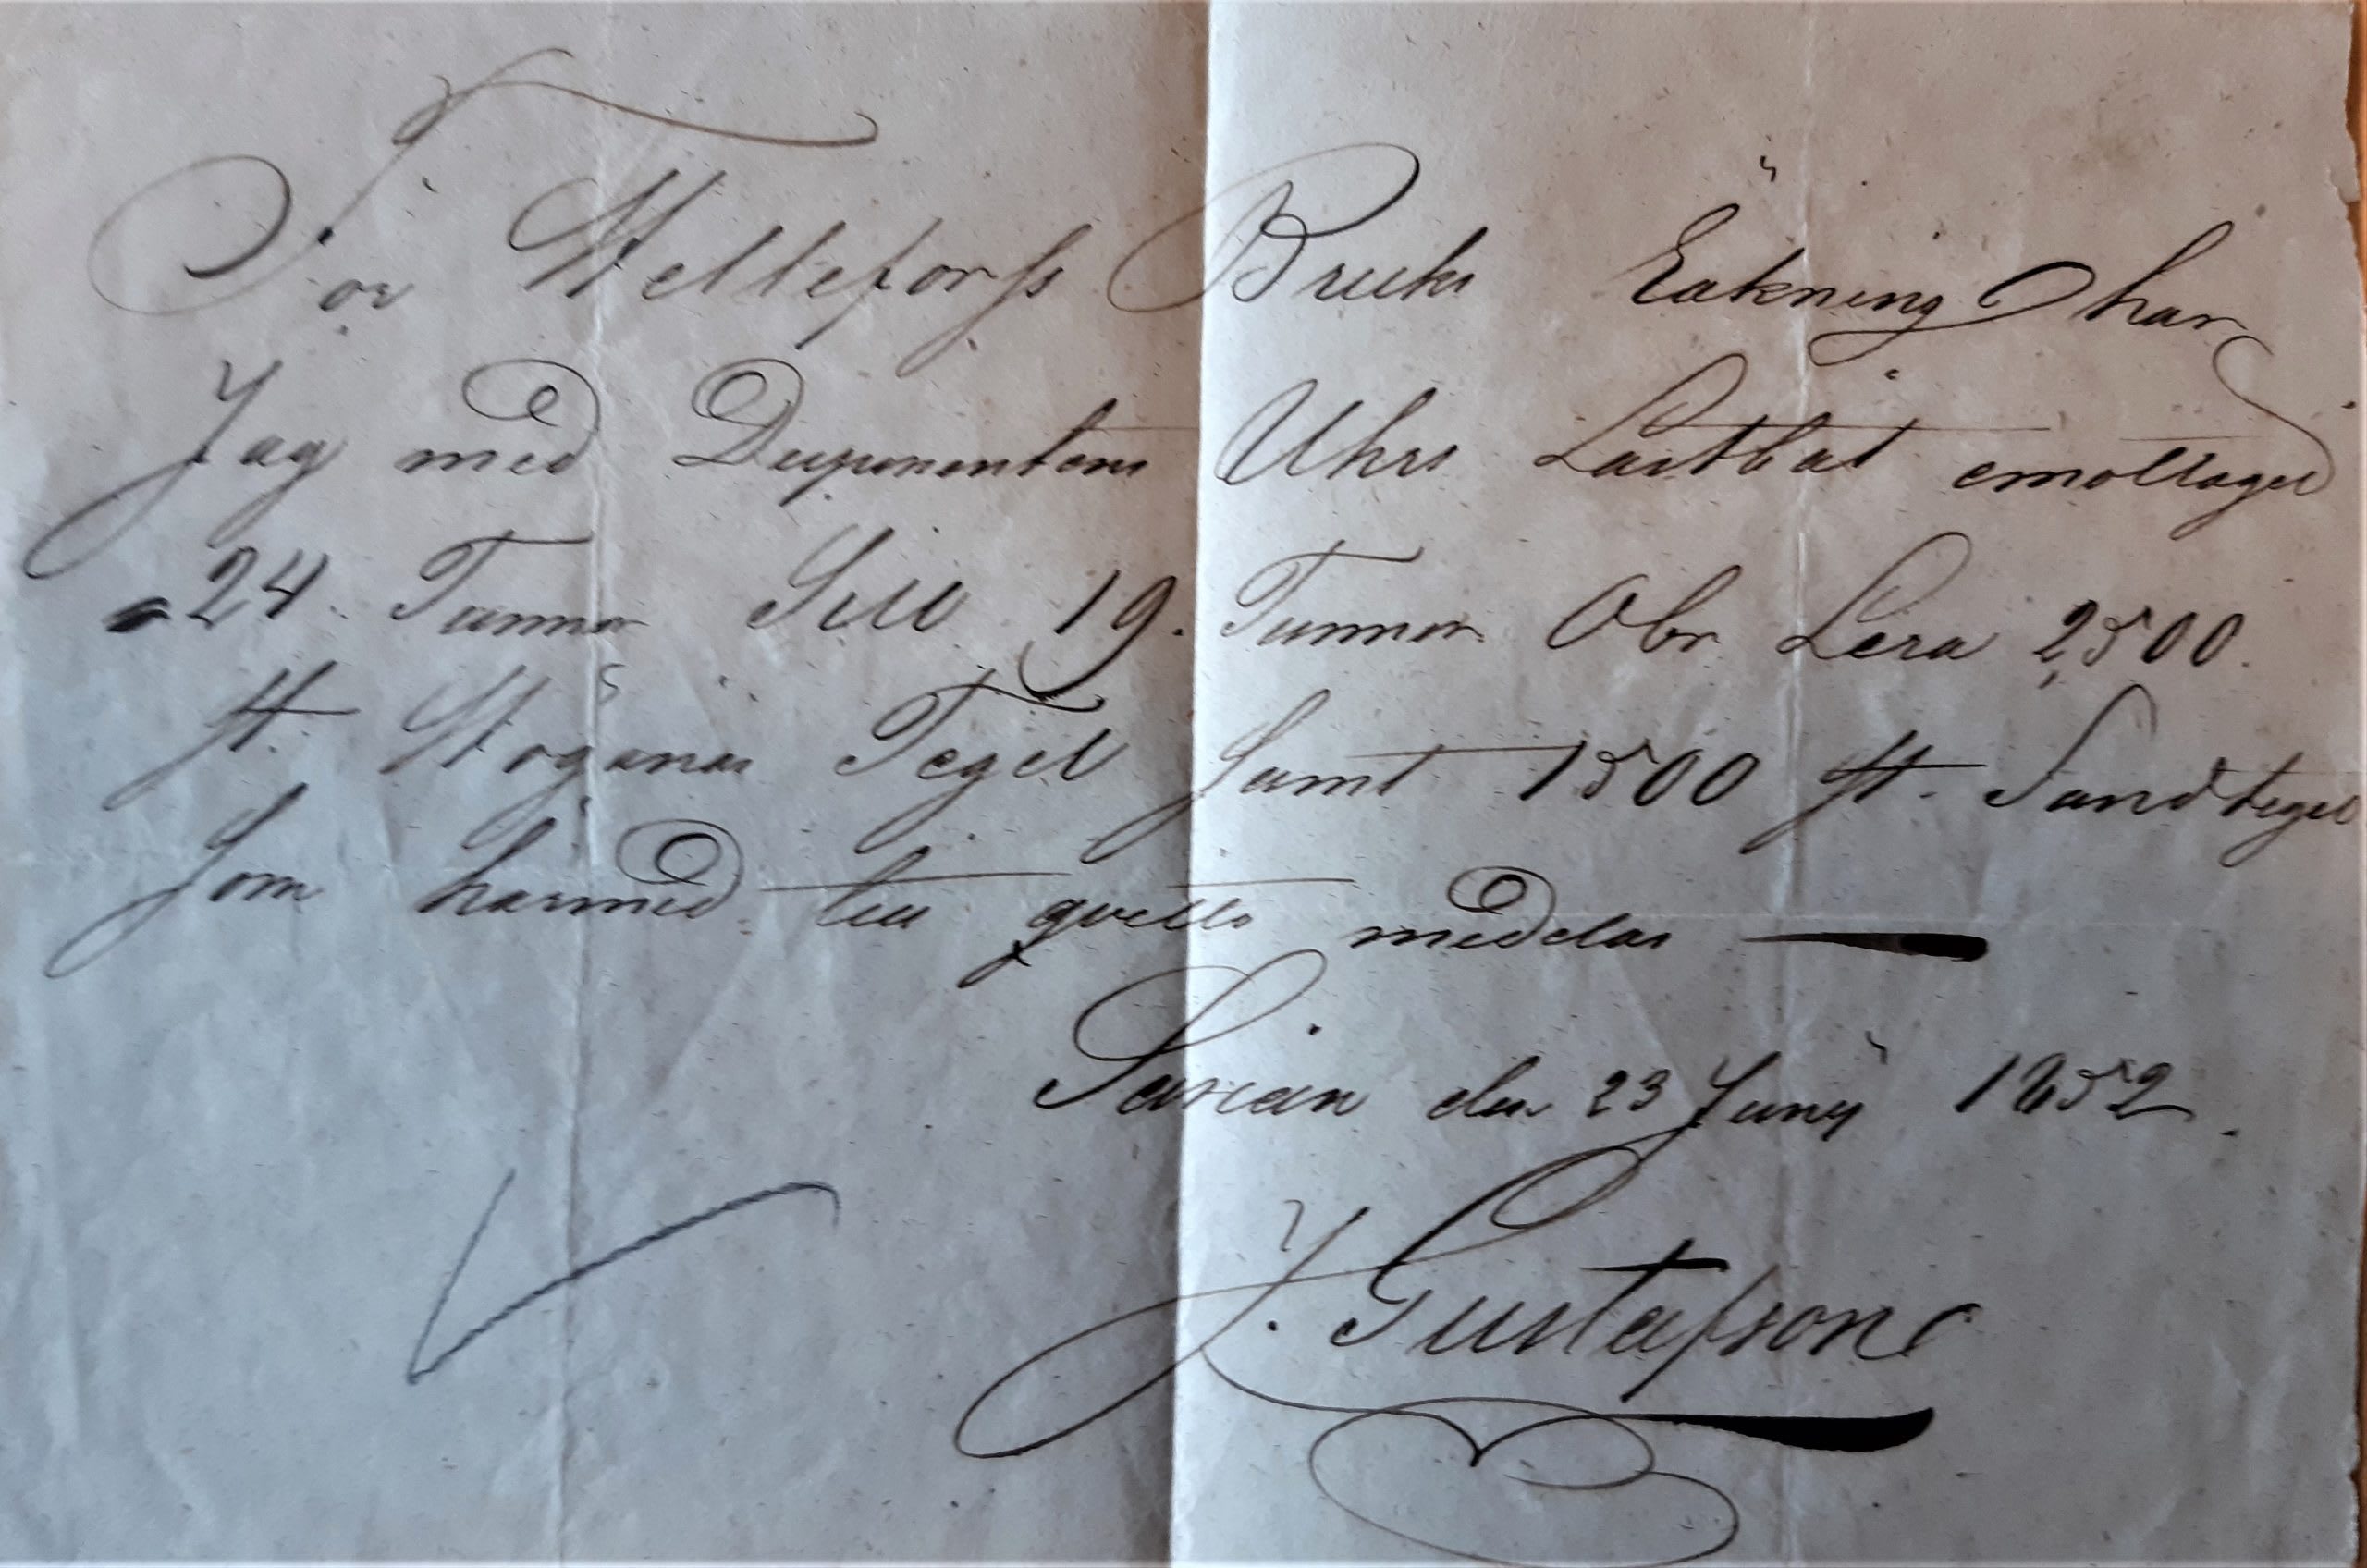 För Helleforss Bruks Räkning har
Jag med Disponentens Uhrs Lastbåt emottaget
24 Tunnor Sill 19. Tunnor Obr Lera 2500.
st. Höganäs Tegel Samt 1500 st. Sandtegel
Som härmed till qvitto medelas
Saxån den 23 Juny 1852.
J. Gustafson